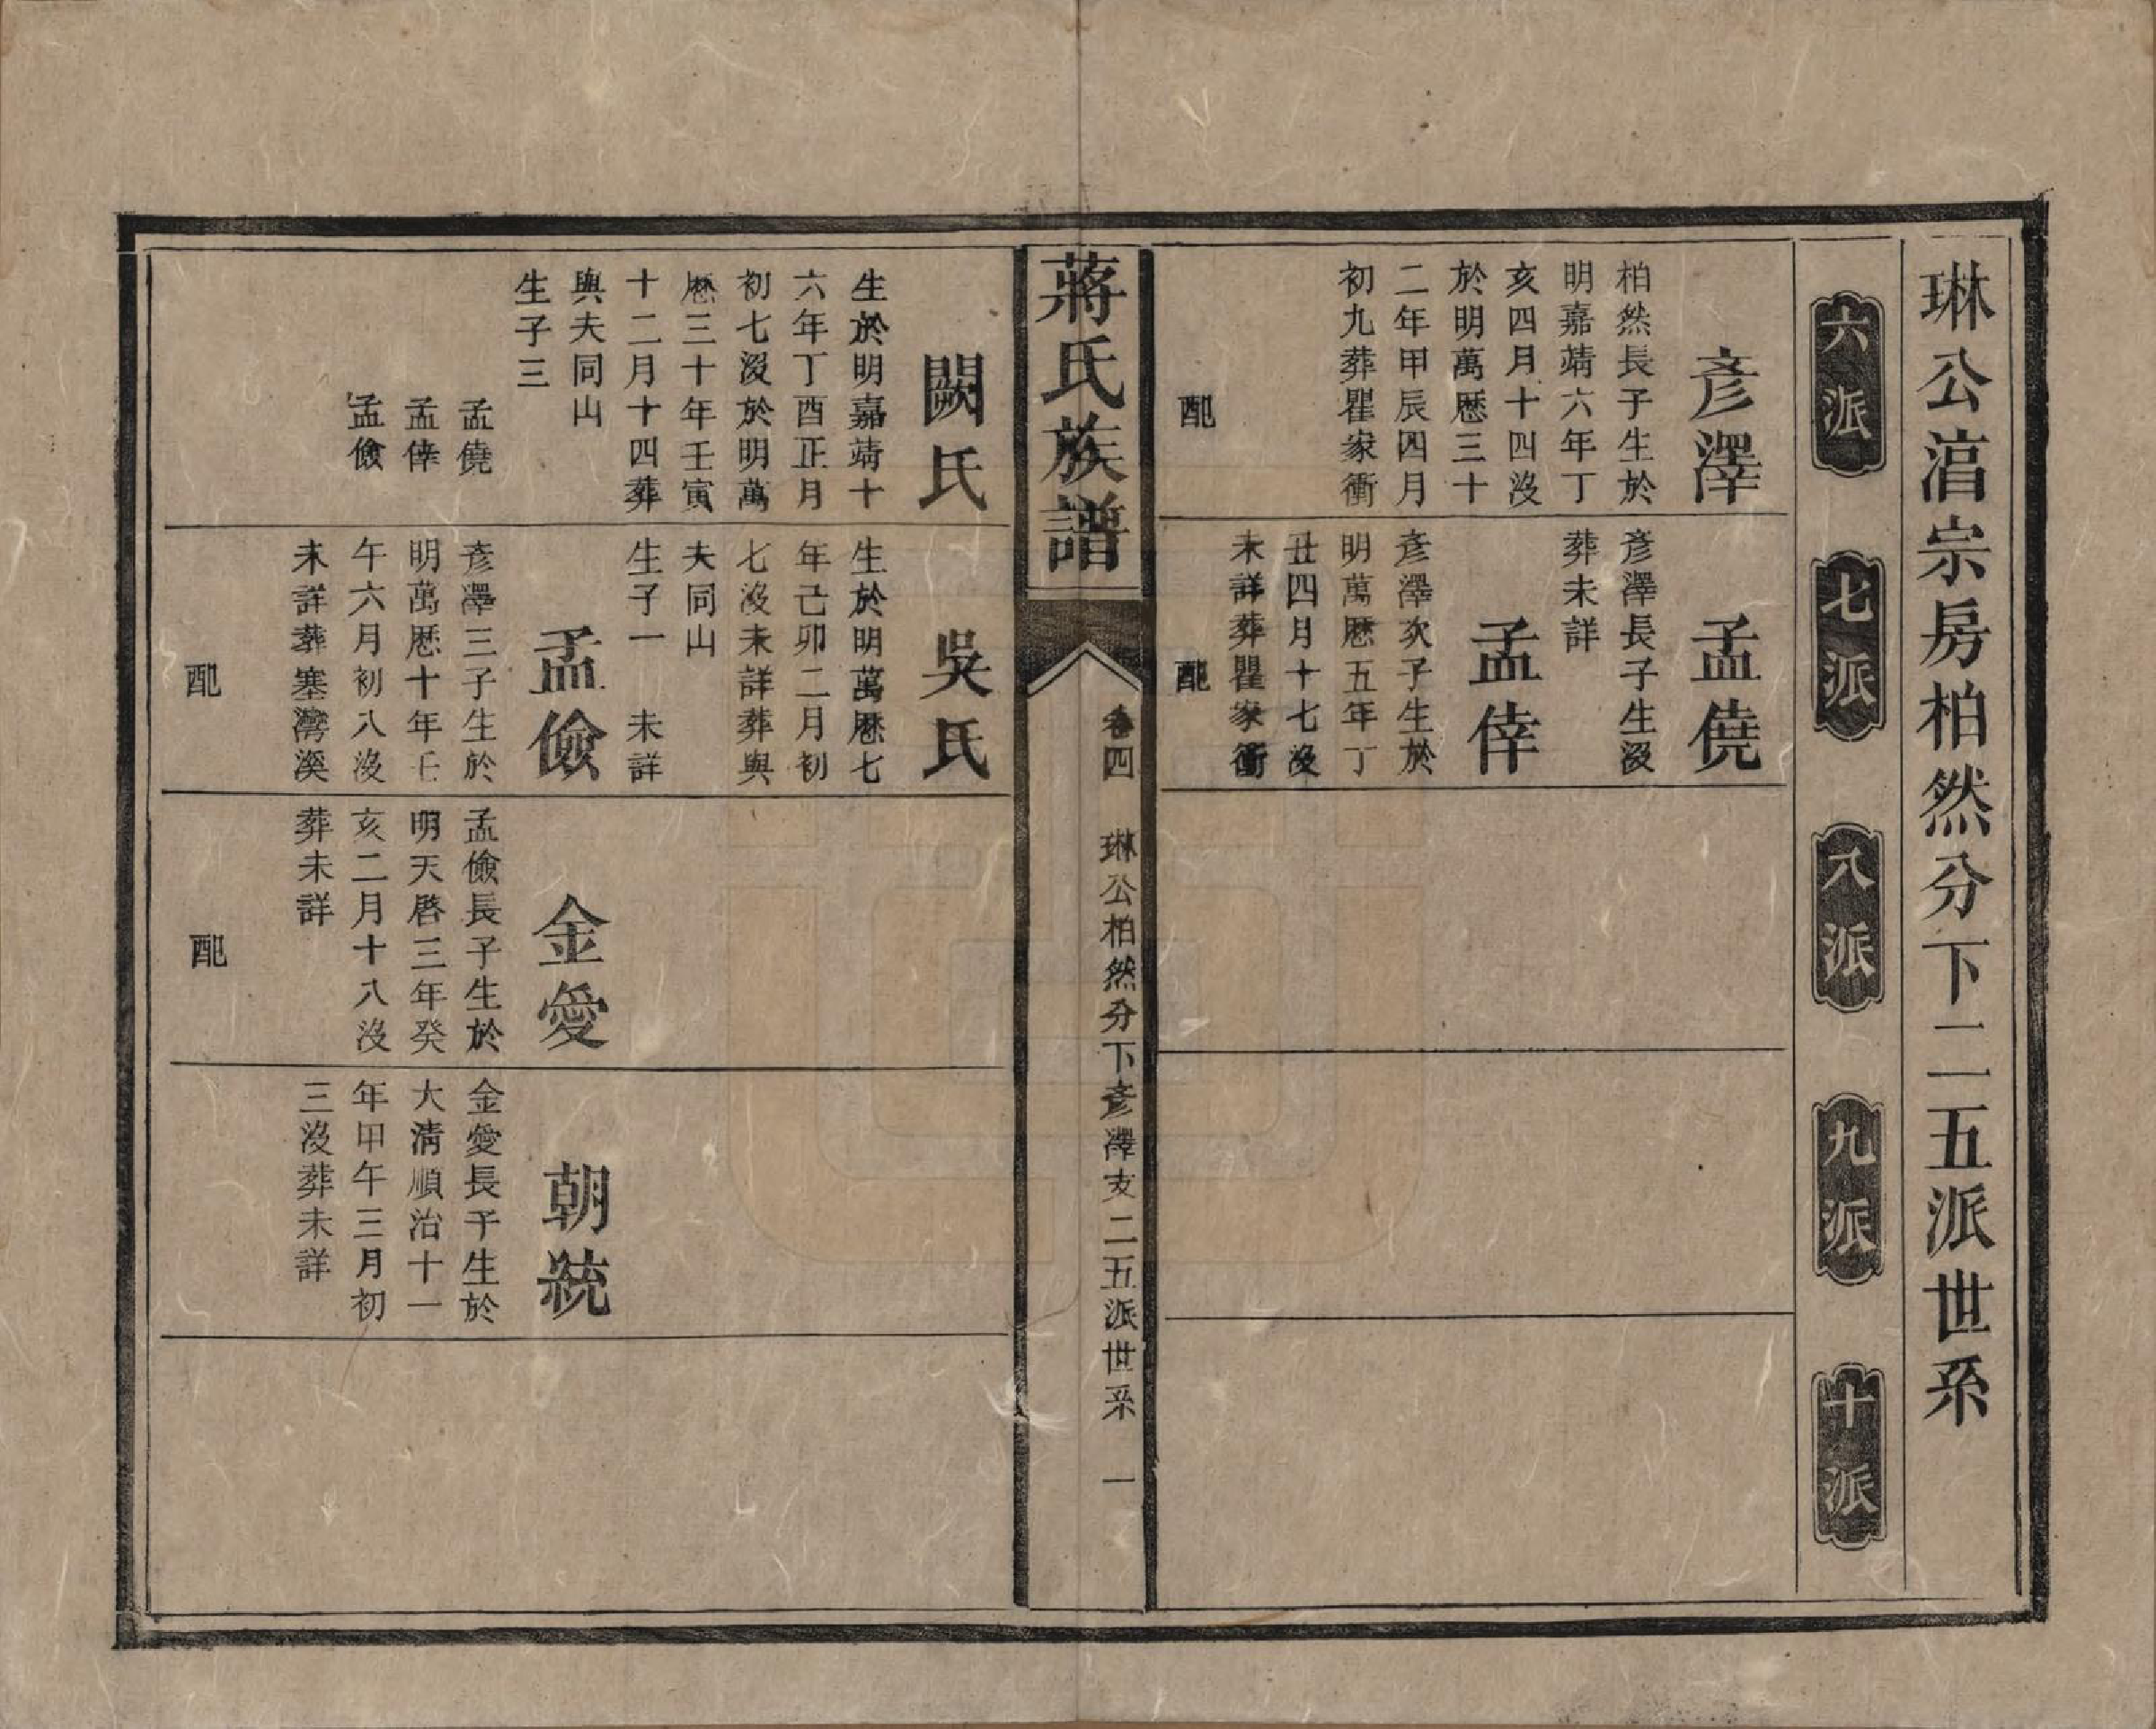 琳公㳷宗房柏然分下二五派世系
六派
七派
八派
九派
十派
彥澤
柏然長子生於
明嘉靖六年丁
亥四月十四沒
於明萬歷三十
二年甲辰四月
初九葬瞿家衝
配
孟僥
彥澤長子生沒
葬未詳
孟倖
彥澤次子生於
明萬歷五年丁
丑四月十七沒
未詳葬瞿家衝
配
蔣氏族譜
卷四
琳公柏然分下彥澤支二五派世系
一
闕氏
生於明嘉靖十
六年丁酉正月
初七沒於明萬
歷三十年壬寅
十二月十四葬
與夫同山
生子三
孟僥
孟倖
孟儉
吳氏
生於明萬歷七
年己卯二月初
七沒未詳葬與
夫同山
生子一 未詳
孟儉
彥澤三子生於
明萬歷十年壬
午六月初八沒
未詳葬塞灣溪
配
金愛
孟儉長子生於
明天啓三年癸
亥二月十八沒
葬未詳
配
朝統
金愛長子生於
大清順治十一
年甲午三月初
三沒葬未詳